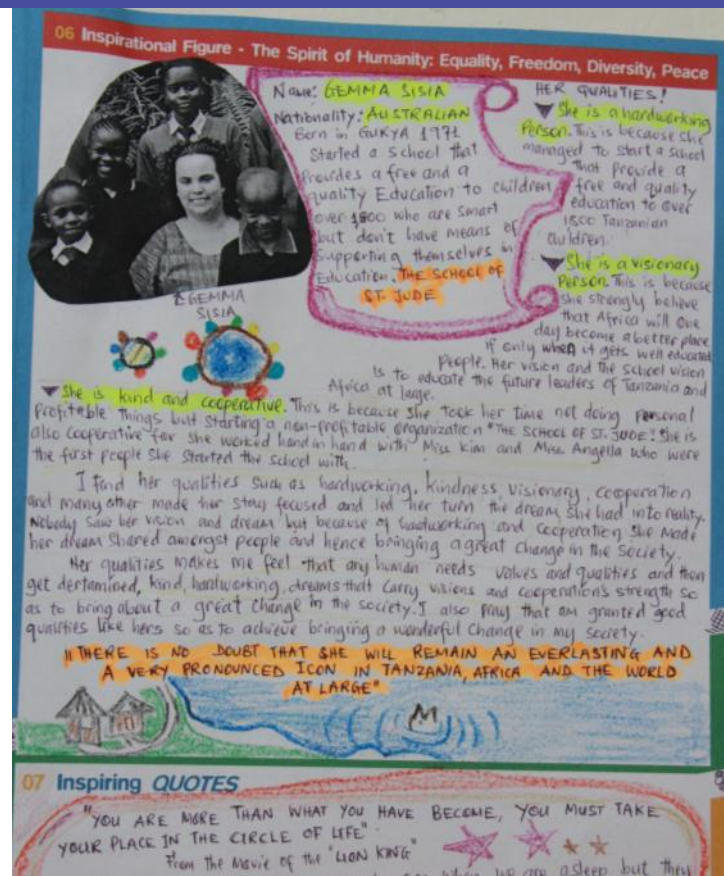 06 Inspirational Figure - The Spirit of Humanity: Equality, Freedom, Diversity, Peace
Name: GEMMA SISIA
Nationality: AUSTRALIAN
Born in GUKYA 1971
Started a school that
Provides a free and a
quality Education to children
over 1500 who are smart
but don't have means of
supporting themselves in
Education. THE SCHOOL OF
ST. JUDE
HER QUALITIES!
She is a hardworking
Person. This is because she
managed to start a school
that provide a
free and quality
education to over
1500 Tanzanian
children.
She is a visionary
Person. This is because
she strongly believe
that Africa will one
day become a better place
if only when it gets well educated
people. Her vision and the school vision
is to educate the future leaders of Tanzania and
Africa at large.
GEMMA
SISIA
She is kind and cooperative. This is because she took her time not doing personal
profitable things but starting a non-profitable organization "THE SCHOOL OF ST. JUDE". She is
also cooperative for she worked hand in hand with Miss Kim and Miss Angella who were
the first people she started the school with.
I find her qualities such as hardworking, kindness, visionary, cooperation
and many other made her stay focused and led her turn the dream she had into reality.
Nobody saw her vision and dream but because of hardworking and cooperation she made
her dream shared amongst people and hence bringing a great change in the society.
Her qualities makes me feel that any human needs values and qualities and then
get dertamined, kind, hardworking, dreams that carry visions and cooperation's strength so
as to bring about a great change in the society. I also pray that am granted good
qualities like hers so as to achieve bringing a wonderful change in my society.
"THERE IS NO DOUBT THAT SHE WILL REMAIN AN EVERLASTING AND
A VERY PRONOUNCED ICON IN TANZANIA, AFRICA AND THE WORLD
AT LARGE"
07 Inspiring QUOTES
"YOU ARE MORE THAN WHAT YOU HAVE BECOME, YOU MUST TAKE
YOUR PLACE IN THE CIRCLE OF LIFE"
From the Movie of the "LION KING"
when we are asleep but they